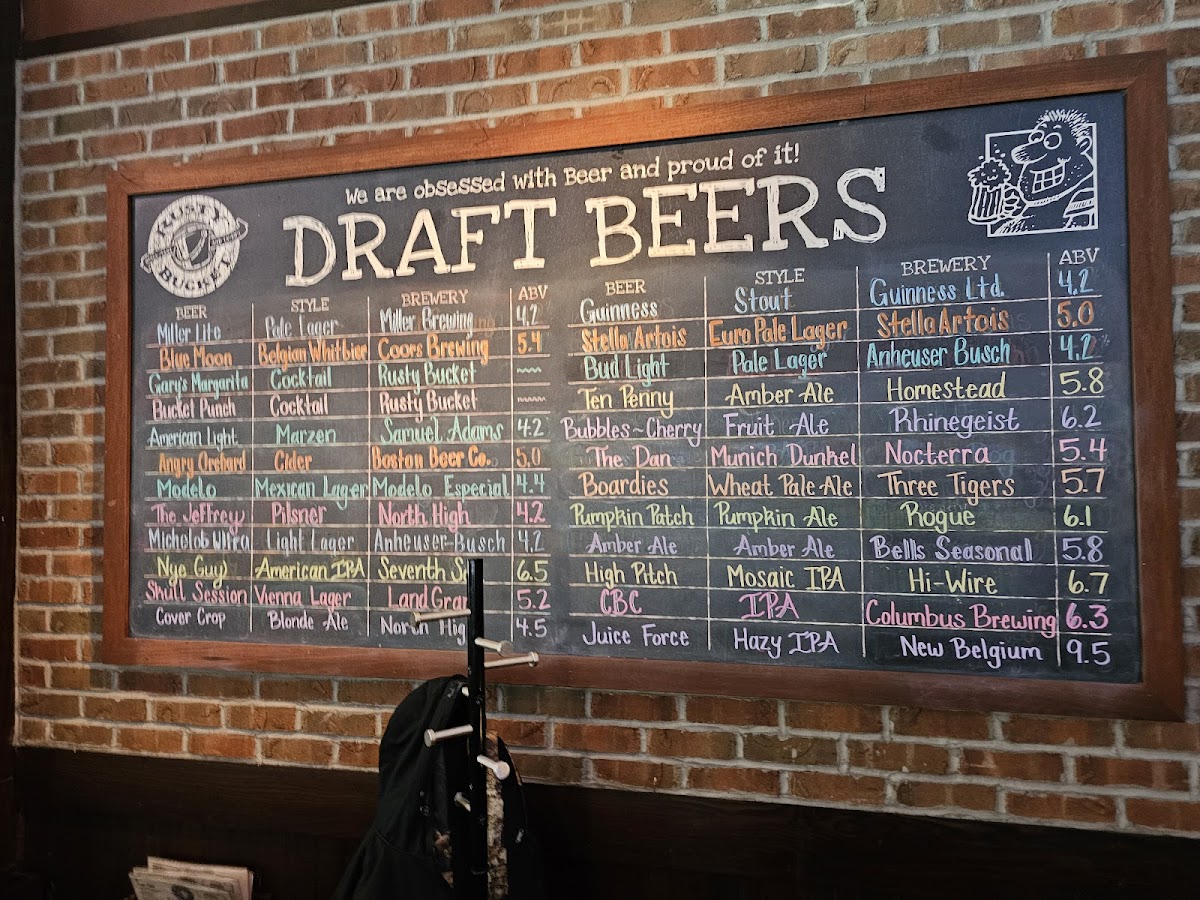 We are obsessed with Beer and proud of it!
DRAFT BEERS
BUCKET
BEER STYLE BREWERY ABV
Miller Lite Pale Lager Miller Brewing 4.2
Blue Moon Belgian Whitbier Coors Brewing 5.4
Gary's Margarita Cocktail Rusty Bucket ~~~
Bucket Punch Cocktail Rusty Bucket ~~~
American Light Marzen Samuel Adams 4.2
Angry Orchard Cider Boston Beer Co. 5.0
Modelo Mexican Lager Modelo Especial 4.4
The Jeffrey Pilsner North High 4.2
Michelob Ultra Light Lager Anheuser-Busch 4.2
Nye Guy American IPA Seventh 6.5
Skull Session Vienna Lager Land 5.2
Cover Crop Blonde Ale North 4.5
BEER STYLE BREWERY ABV
Guinness Stout Guinness Ltd. 4.2
Stella Artois Euro Pale Lager Stella Artois 5.0
Bud Light Pale Lager Anheuser Busch 4.2
Ten Penny Amber Ale Homestead 5.8
Bubbles~Cherry Fruit Ale Rhinegeist 6.2
The Dan Munich Dunkel Nocterra 5.4
Boardies Wheat Pale Ale Three Tigers 5.7
Pumpkin Patch Pumpkin Ale Rogue 6.1
Amber Ale Amber Ale Bells Seasonal 5.8
High Pitch Mosaic IPA Hi-Wire 6.7
CBC IPA Columbus Brewing 6.3
Juice Force Hazy IPA New Belgium 9.5